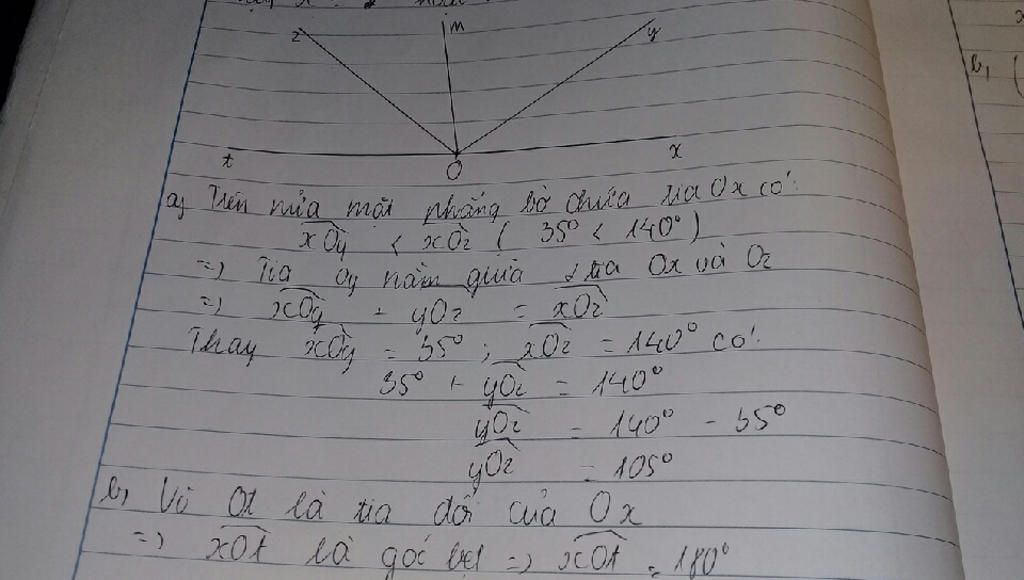 z m y
t O x
a, Trên nửa mặt phẳng bờ chứa tia Ox có:
xOy < xOz ( 35° < 140° )
=> Tia Oy nằm giữa 2 tia Ox và Oz
=> xOy + yOz = xOz
Thay xOy = 35° ; xOz = 140° có:
35° + yOz = 140°
yOz = 140° - 35°
yOz = 105°
b, Vì Ot là tia đối của Ox
=> xOt là góc bẹt => xOt = 180°
b, (